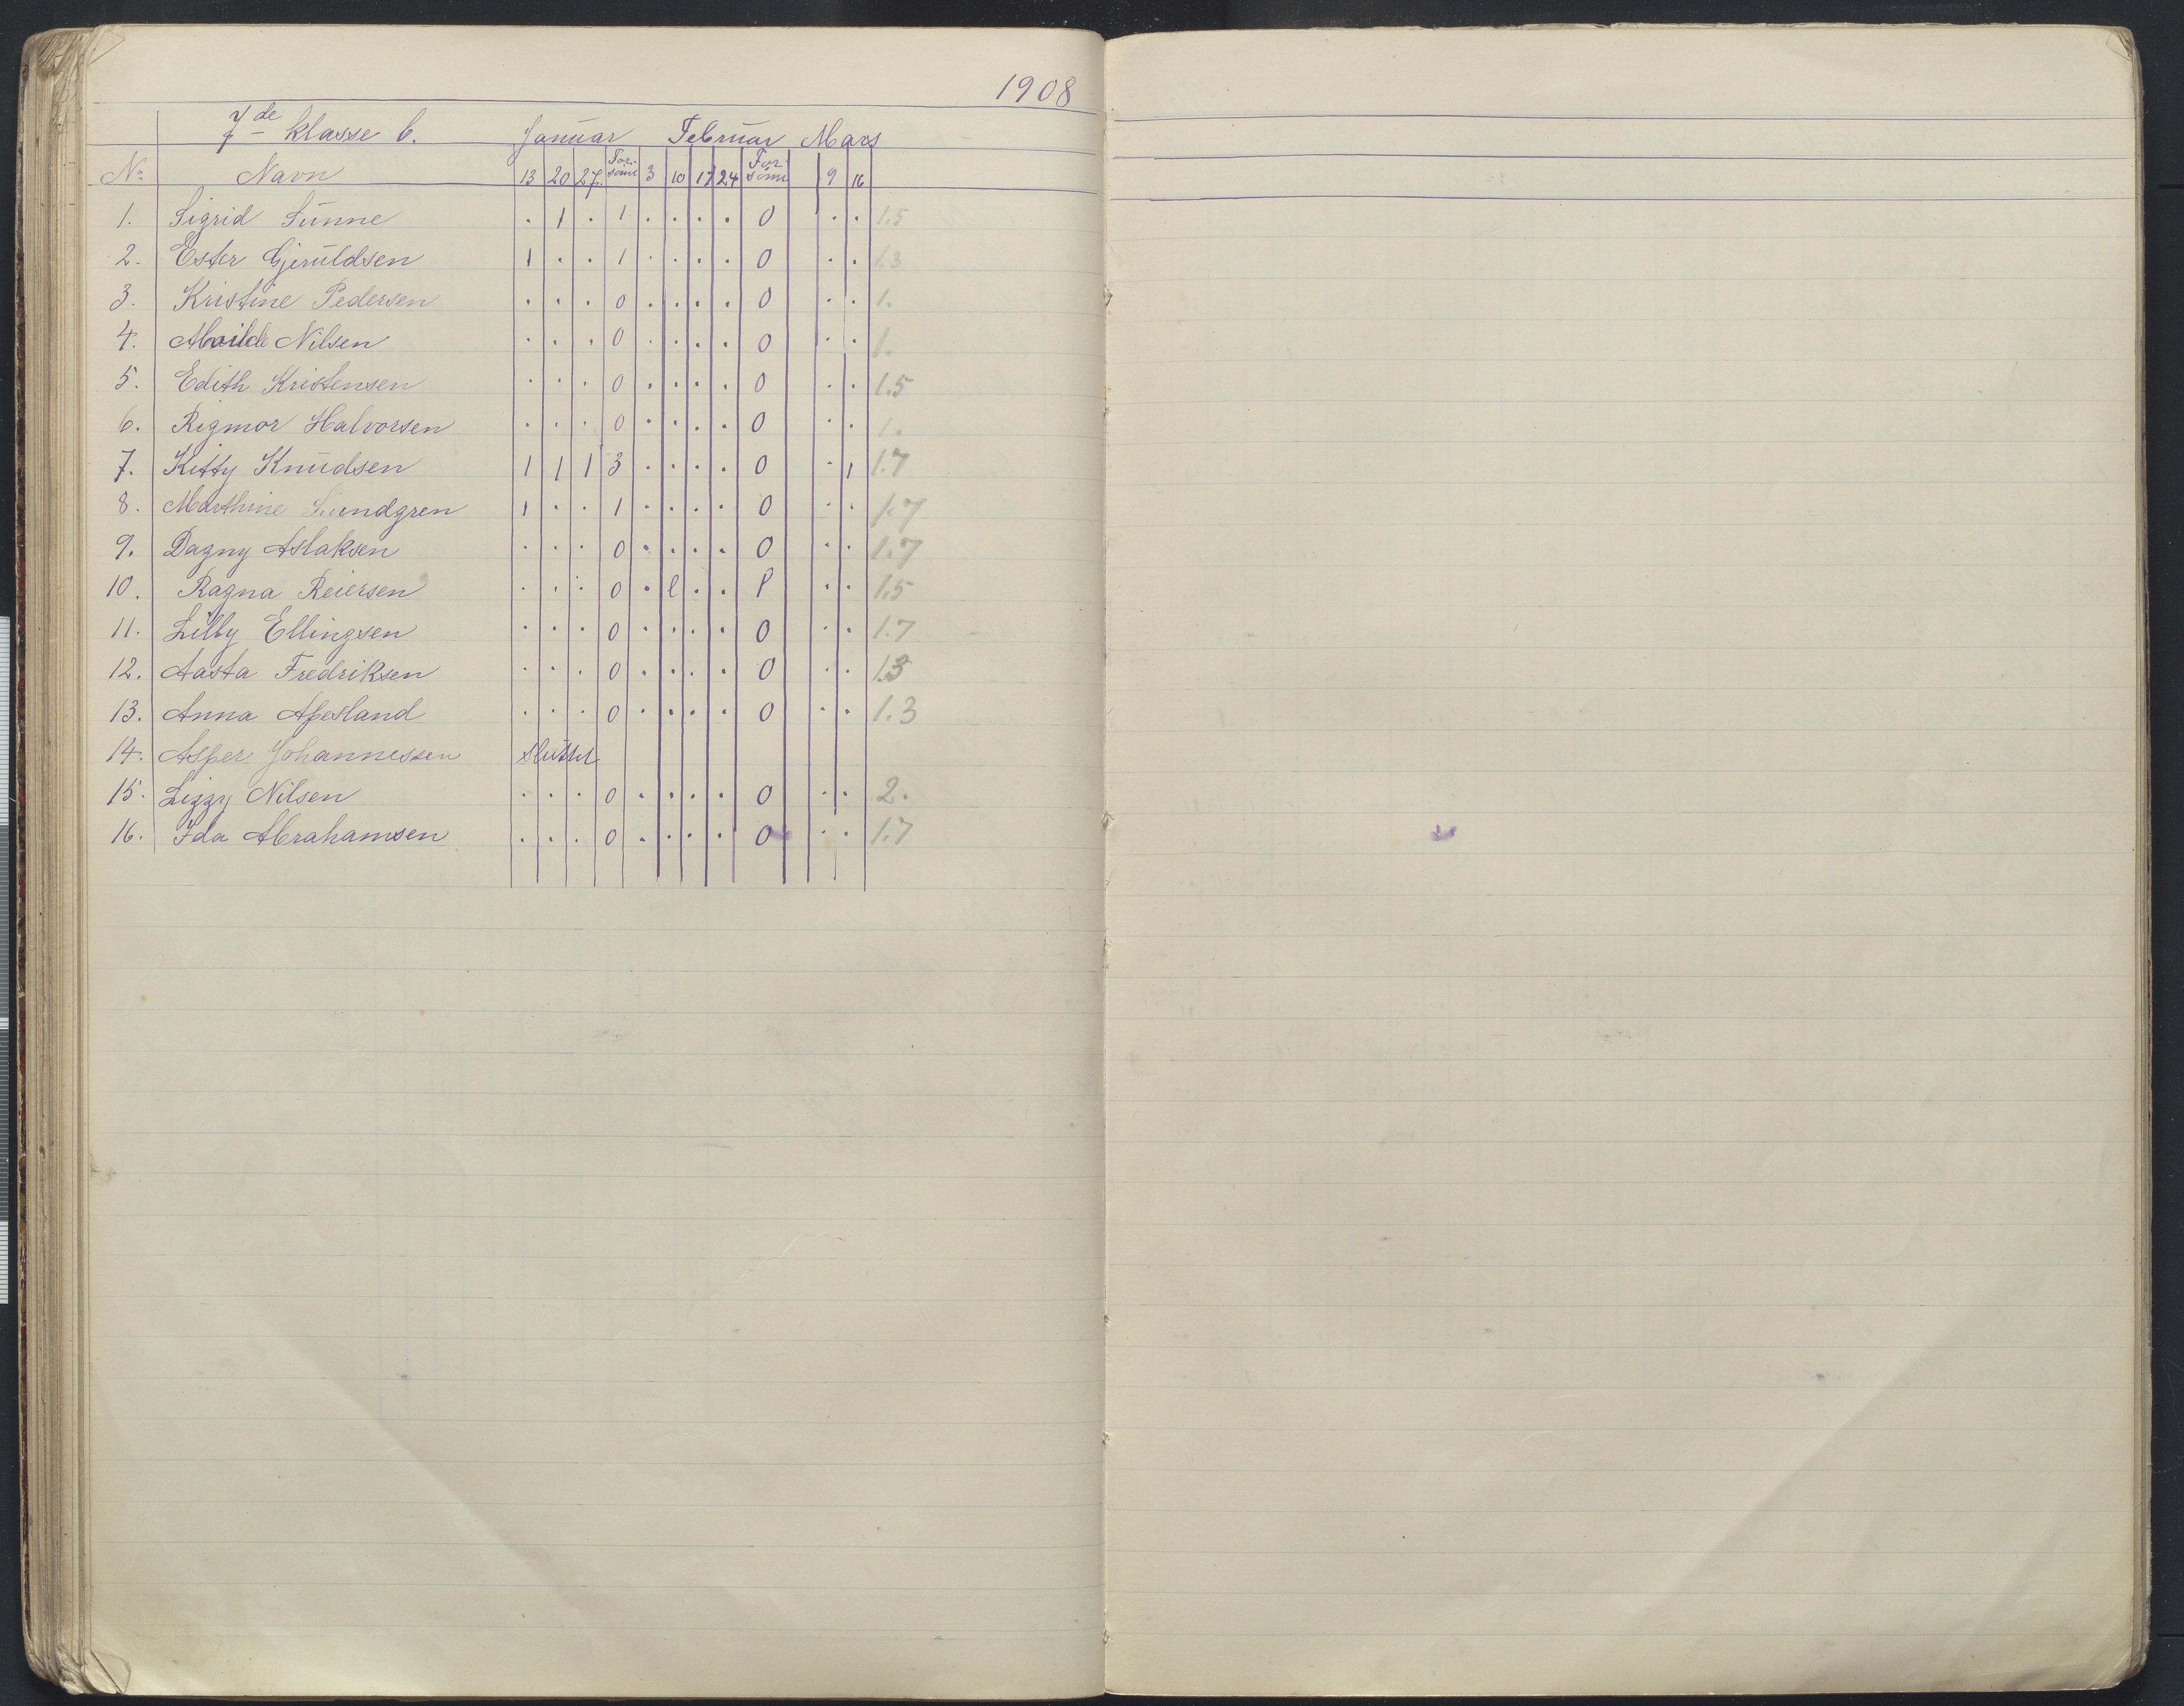 1908
7de klasse b. Januar Februar Mars
No Navn 13 20 27. For- söm 3 10 17 24 For- söm 9 16
1. Sigrid Sünne . 1 . 1 . . . . 0 . . 1.5
2. Ester Gjerüldsen 1 . . 1 . . . . 0 . . 1.3
3. Kristine Pedersen . . . 0 . . . . 0 . . 1.
4. Nilsen . . . 0 . . . . 0 . . 1.
5. Edith Kristensen . . . 0 . . . . 0 . . 1.5
6. Rigmor Halvorsen . . . 0 . . . . 0 . . 1.
7. Kitty Knüdsen 1 1 1 3 . . . . 0 . 1 1.7
8. Marthine Lundgren 1 . . 1 . . . . 0 . . 1.7
9. Dagny Aslaksen . . . 0 . . . . 0 . . 1.7
10. Ragna Reiersen . . . 0 . l . . l . . 1.5
11. Lilly Ellingsen . . . 0 . . . . 0 . . 1.7
12. Aasta Fredriksen . . . 0 . . . . 0 . . 1.3
13. Anna Apesland . . . 0 . . . . 0 . . 1.3
14. Asper Johannessen slüttet
15. Lizzy Nilsen . . . 0 . . . . 0 . . 2.
16. Ida Abrahamsen . . . 0 . . . . 0 . . 1.7